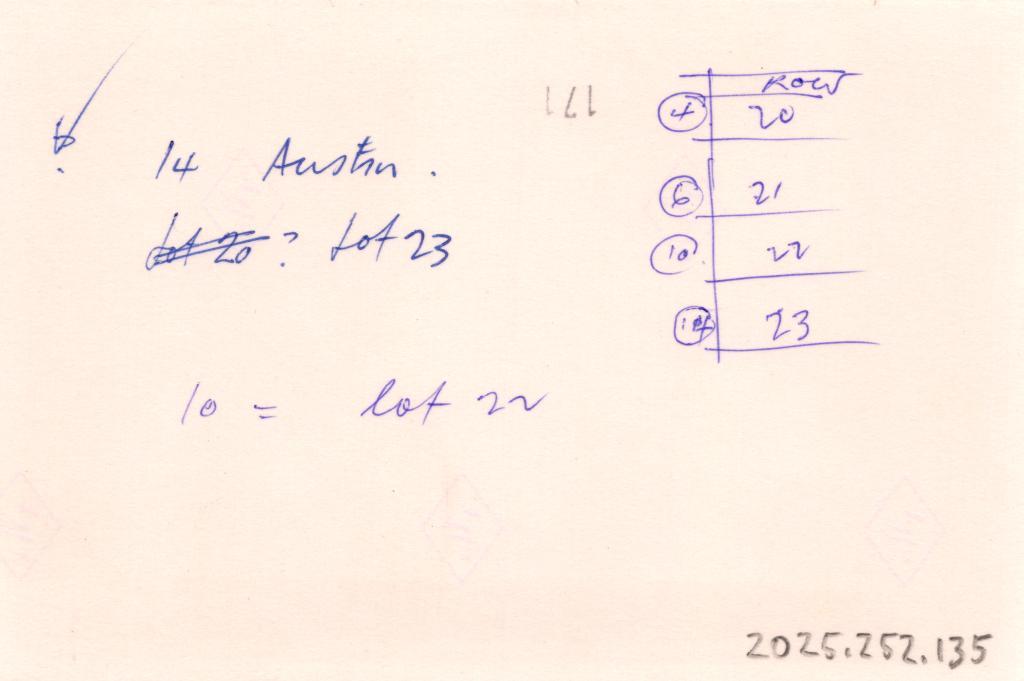 14 Austin.
Lot 20? Lot 23
10 = lot 22
171
ROW
4 20
6 21
10 22
14 23
2025.252.135